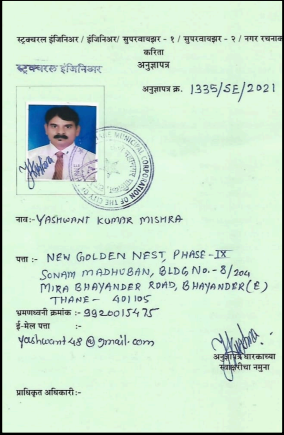 स्ट्रक्चरल इंजिनिअर / इंजिनिअर/ सुपरवायझर - १ / सुपरवायझर - २ / नगर रचनाकार
करिता
अनुज्ञापत्र
स्ट्रक्चरल इंजिनिअर
अनुज्ञापत्र क्र. 1335/SE/2021
MUNICIPAL CORPORATION OF THE CITY OF THANE
नाव:- YASHWANT KUMAR MISHRA
पत्ता :- NEW GOLDEN NEST, PHASE-IX
SONAM MADHUBAN, BLDG NO.-8/204
MIRA BHAYANDER ROAD, BHAYANDER(E)
THANE- 401105
भ्रमणध्वनी क्रमांक :- 9920015475
ई-मेल पत्ता :-
yashwant48@gmail.com
अनुज्ञापत्र धारकाच्या
स्वाक्षरीचा नमुना
प्राधिकृत अधिकारी:-